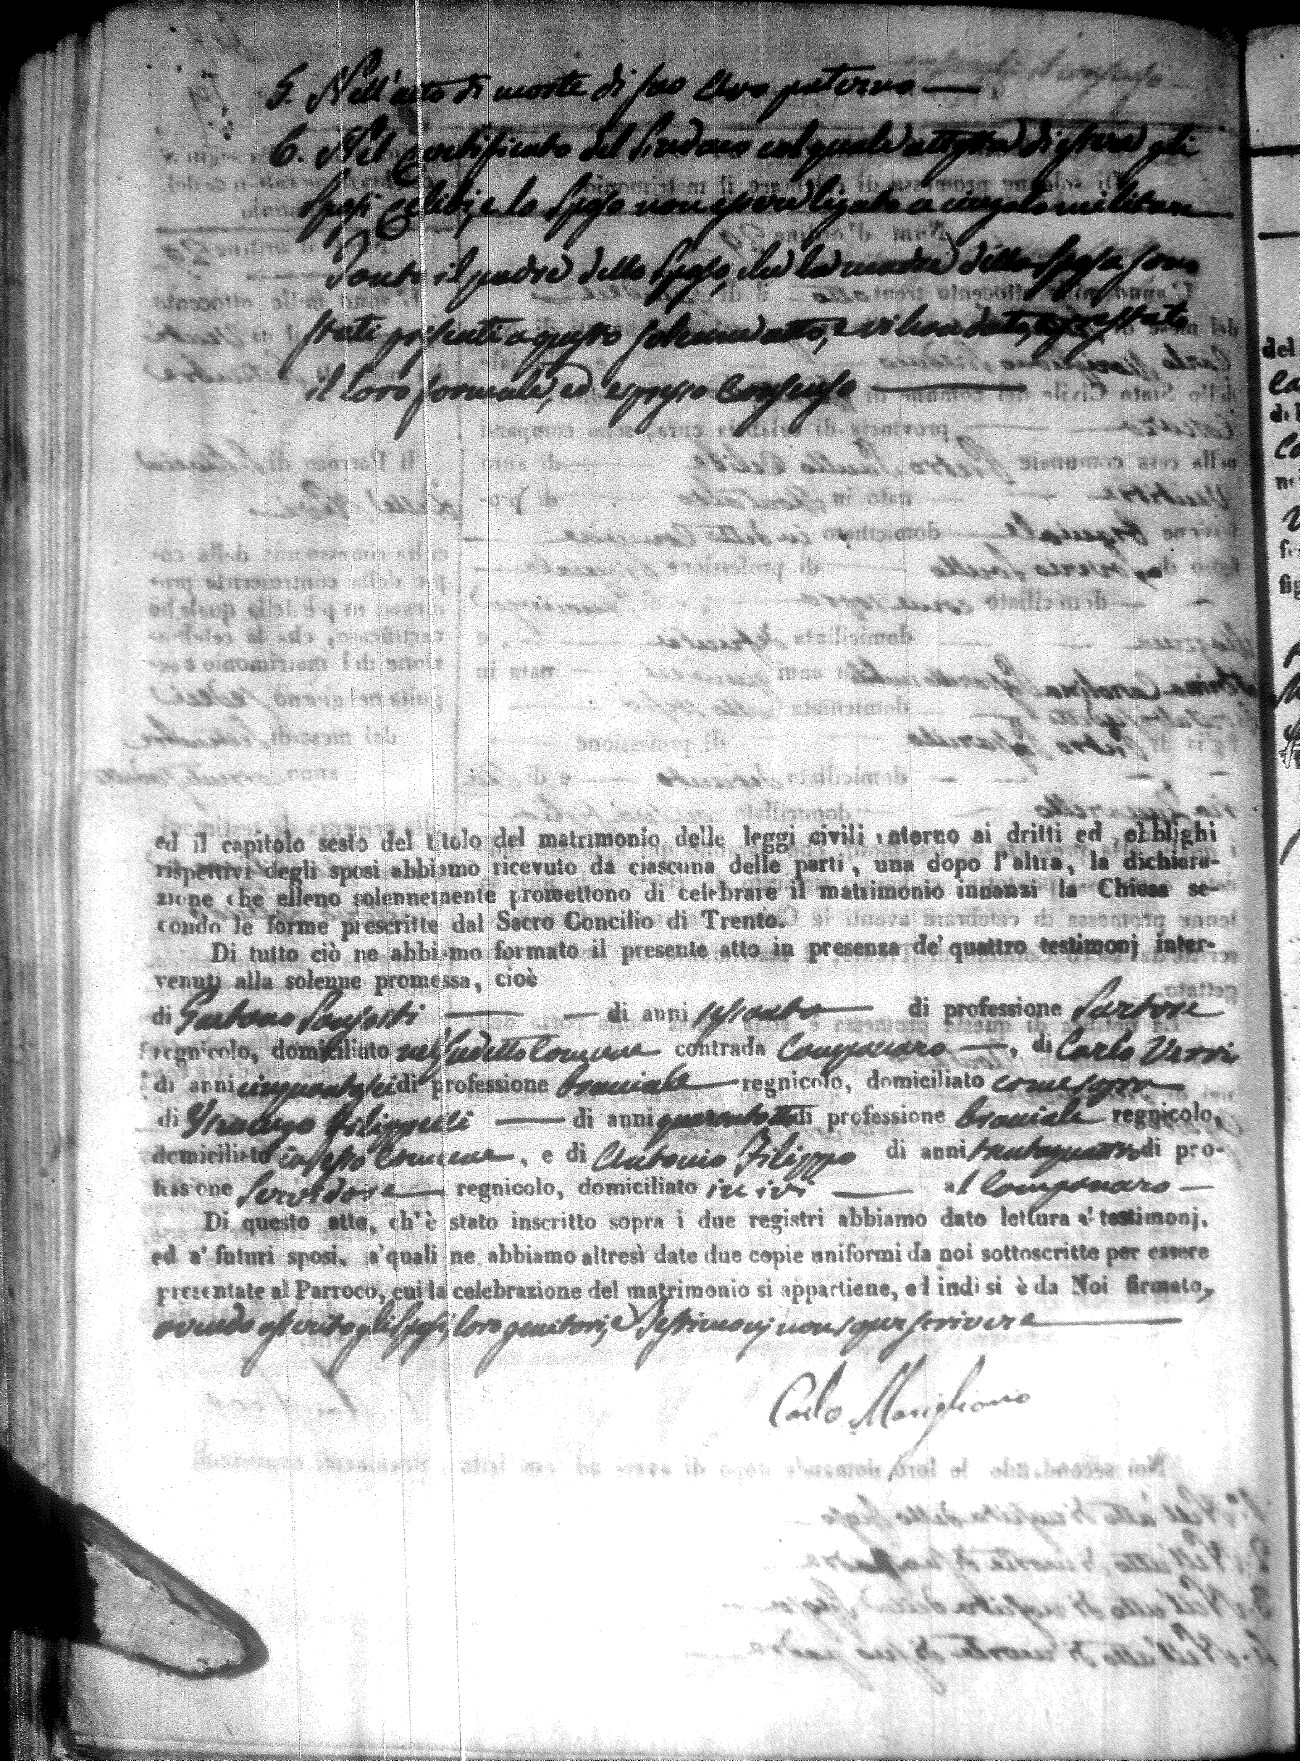 5. Nell'atto di morte di suo Avo paterno —
6. Nel Certificato del Sindaco col quale attesta di essere gli
Sposi Celibi, e lo Sposo non essere ligato a cingolo militare
Tanto il padre dello Sposo, che la madre della Sposa sono
stati presenti a questo solenne atto, e vi han dato,
il loro formale, ed espresso Consenso —
ed il capitolo sesto del titolo del matrimonio delle leggi civili intorno ai dritti ed obblighi
rispettivi degli sposi abbiamo ricevuto da ciascuna delle parti, una dopo l'altra, la dichiara-
zione che elleno solennemente promettono di celebrare il matrimonio innanzi la Chiesa se-
condo le forme prescritte dal Sacro Concilio di Trento.
Di tutto ciò ne abbiamo formato il presente atto in presenza de' quattro testimonj inter-
venuti alla solenne promessa, cioè
di Gaetano — di anni sessanta — di professione Sartore
regnicolo, domiciliato nel sudetto Comune contrada Componaro —, di Carlo
di anni cinquantasei di professione bracciale — regnicolo, domiciliato come sopra
di — di anni di professione bracciale regnicolo,
domiciliato in esso Comune, e di Antonio Filippo di anni trentaquattro di pro-
fessione Servidore — regnicolo, domiciliato in ivi — al Componaro —
Di questo atto, ch'è stato inscritto sopra i due registri abbiamo dato lettura a' testimonj,
ed a' futuri sposi, a' quali ne abbiamo altresì date due copie uniformi da noi sottoscritte per essere
presentate al Parroco, cui la celebrazione del matrimonio si appartiene, ed indi si è da Noi firmato,
avendo asserito gli sposi, loro genitori, e Testimonj non saper scrivere —
Carlo Marigliano